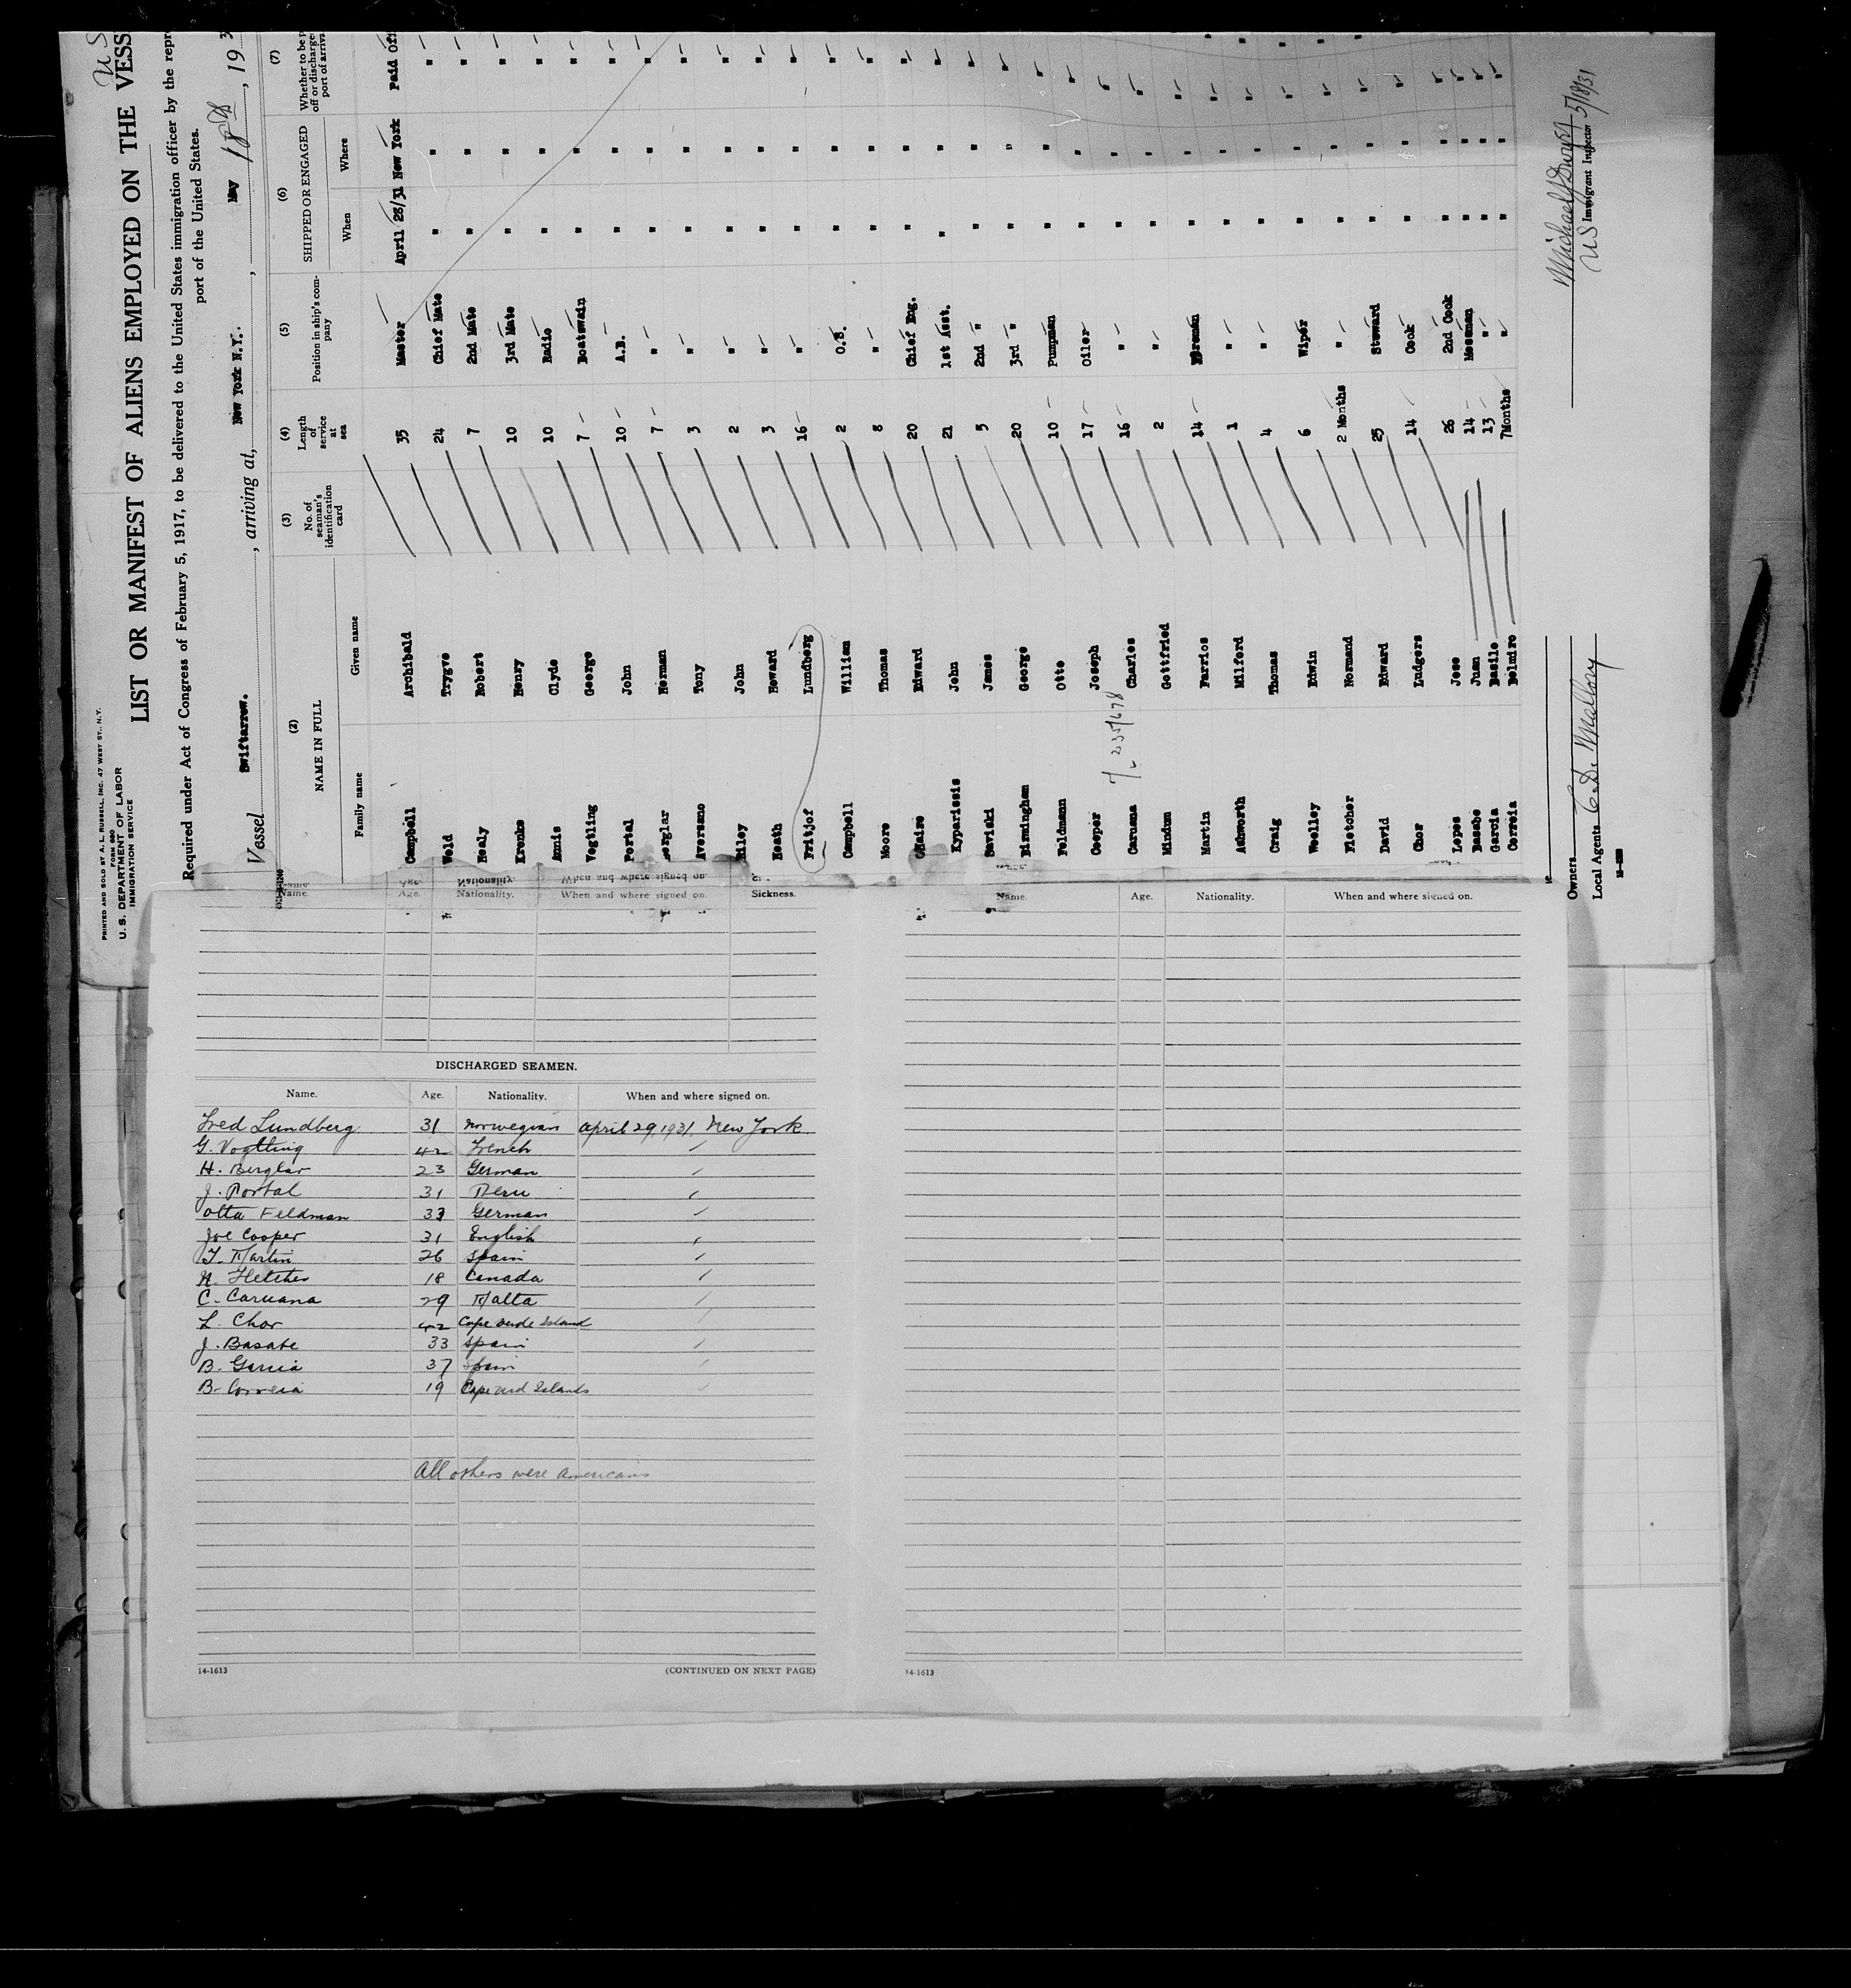 U S
PRINTED AND SOLD BY A. L. RUSSELL, INC. 47 WEST ST., N.Y.
FORM 680
U. S. DEPARTMENT OF LABOR
IMMIGRATION SERVICE
LIST OR MANIFEST OF ALIENS EMPLOYED ON THE VESS
Required under Act of Congress of February 5, 1917, to be delivered to the United States immigration officer by the repr
port of the United States.
Vessel Swiftarrow. , arriving at, New York N.Y. , May 18th , 193
(2) (3) (4) (5) (6) (7)
NAME IN FULL No. of seaman's identification card Length of service at sea Position in ship's company SHIPPED OR ENGAGED Whether to be p off or discharge port of arriva
Family name Given name When Where
Campbell Archibald 35 Master April 28/31 New York Paid Off
Wold Trygve 24 Chief Mate " " "
Healy Robert 7 2nd Mate " " "
Kronke Henry 10 3rd Mate " " "
Annis Clyde 10 Radio " " "
Vogtling George 7 Boatswain " " "
Portal John 10 A.B. " " "
erglar Herman 7 " " " "
Aversano Tony 3 " " " "
Riley John 2 " " " "
Heath Howard 3 " " " "
Fritjof Lundberg 16 " " " "
Campbell William 2 O.S. " " "
Moore Thomas 8 " " " "
OHaire Edward 20 Chief Eng. " " "
Kyparissis John 21 1st Asst. " " "
Saviski James 5 2nd " " " "
Birmingham George 20 3rd " " " "
Feldmann Otto 10 Pumpman " " "
Cooper Joseph 17 Oiler " " "
Caruana Charles 16 " " " "
Mindum Gottfried 2 " " " "
Martin Farrios 14 Fireman " " "
Ashworth Milford 1 " " " "
Craig Thomas 4 " " " "
Woolley Edwin 6 Wiper " " "
Fletcher Normand 2 Months " " " "
David Edward 25 Steward " " "
Chor Ludgers 14 Cook " " "
Lopes Jose 26 2nd Cook " " "
Basabe Juan 14 Messman " " "
Garcia Basile 13 " " " "
Correia Belmiro 7Months " " " "
Owners
Local Agents C. D. Mallory
5/18/31
US Immigrant Inspector
Age. Nationality. When and where signed on.
Name. Age. Nationality. When and where signed on. Sickness.
DISCHARGED SEAMEN.
Name. Age. Nationality. When and where signed on.
Fred Lundberg 31 Norwegian April 29, 1931, New York
G. Vogtling 42 French
H. Berglar 23 German
J. Portal 31 Peru
Otta Feldman 33 German
Joe Cooper 31 English
F. Martin 26 Spain
N. Fletcher 18 Canada
C. Caruana 29 Malta
L. Chor 42 Cape Verde Island
J. Basabe 33 Spain
B. Garcia 37 Spain
B. Correia 19 Cape Verd Islands
All others were Americans
14-1613 (CONTINUED ON NEXT PAGE)
Name. Age. Nationality. When and where signed on.
14-1613